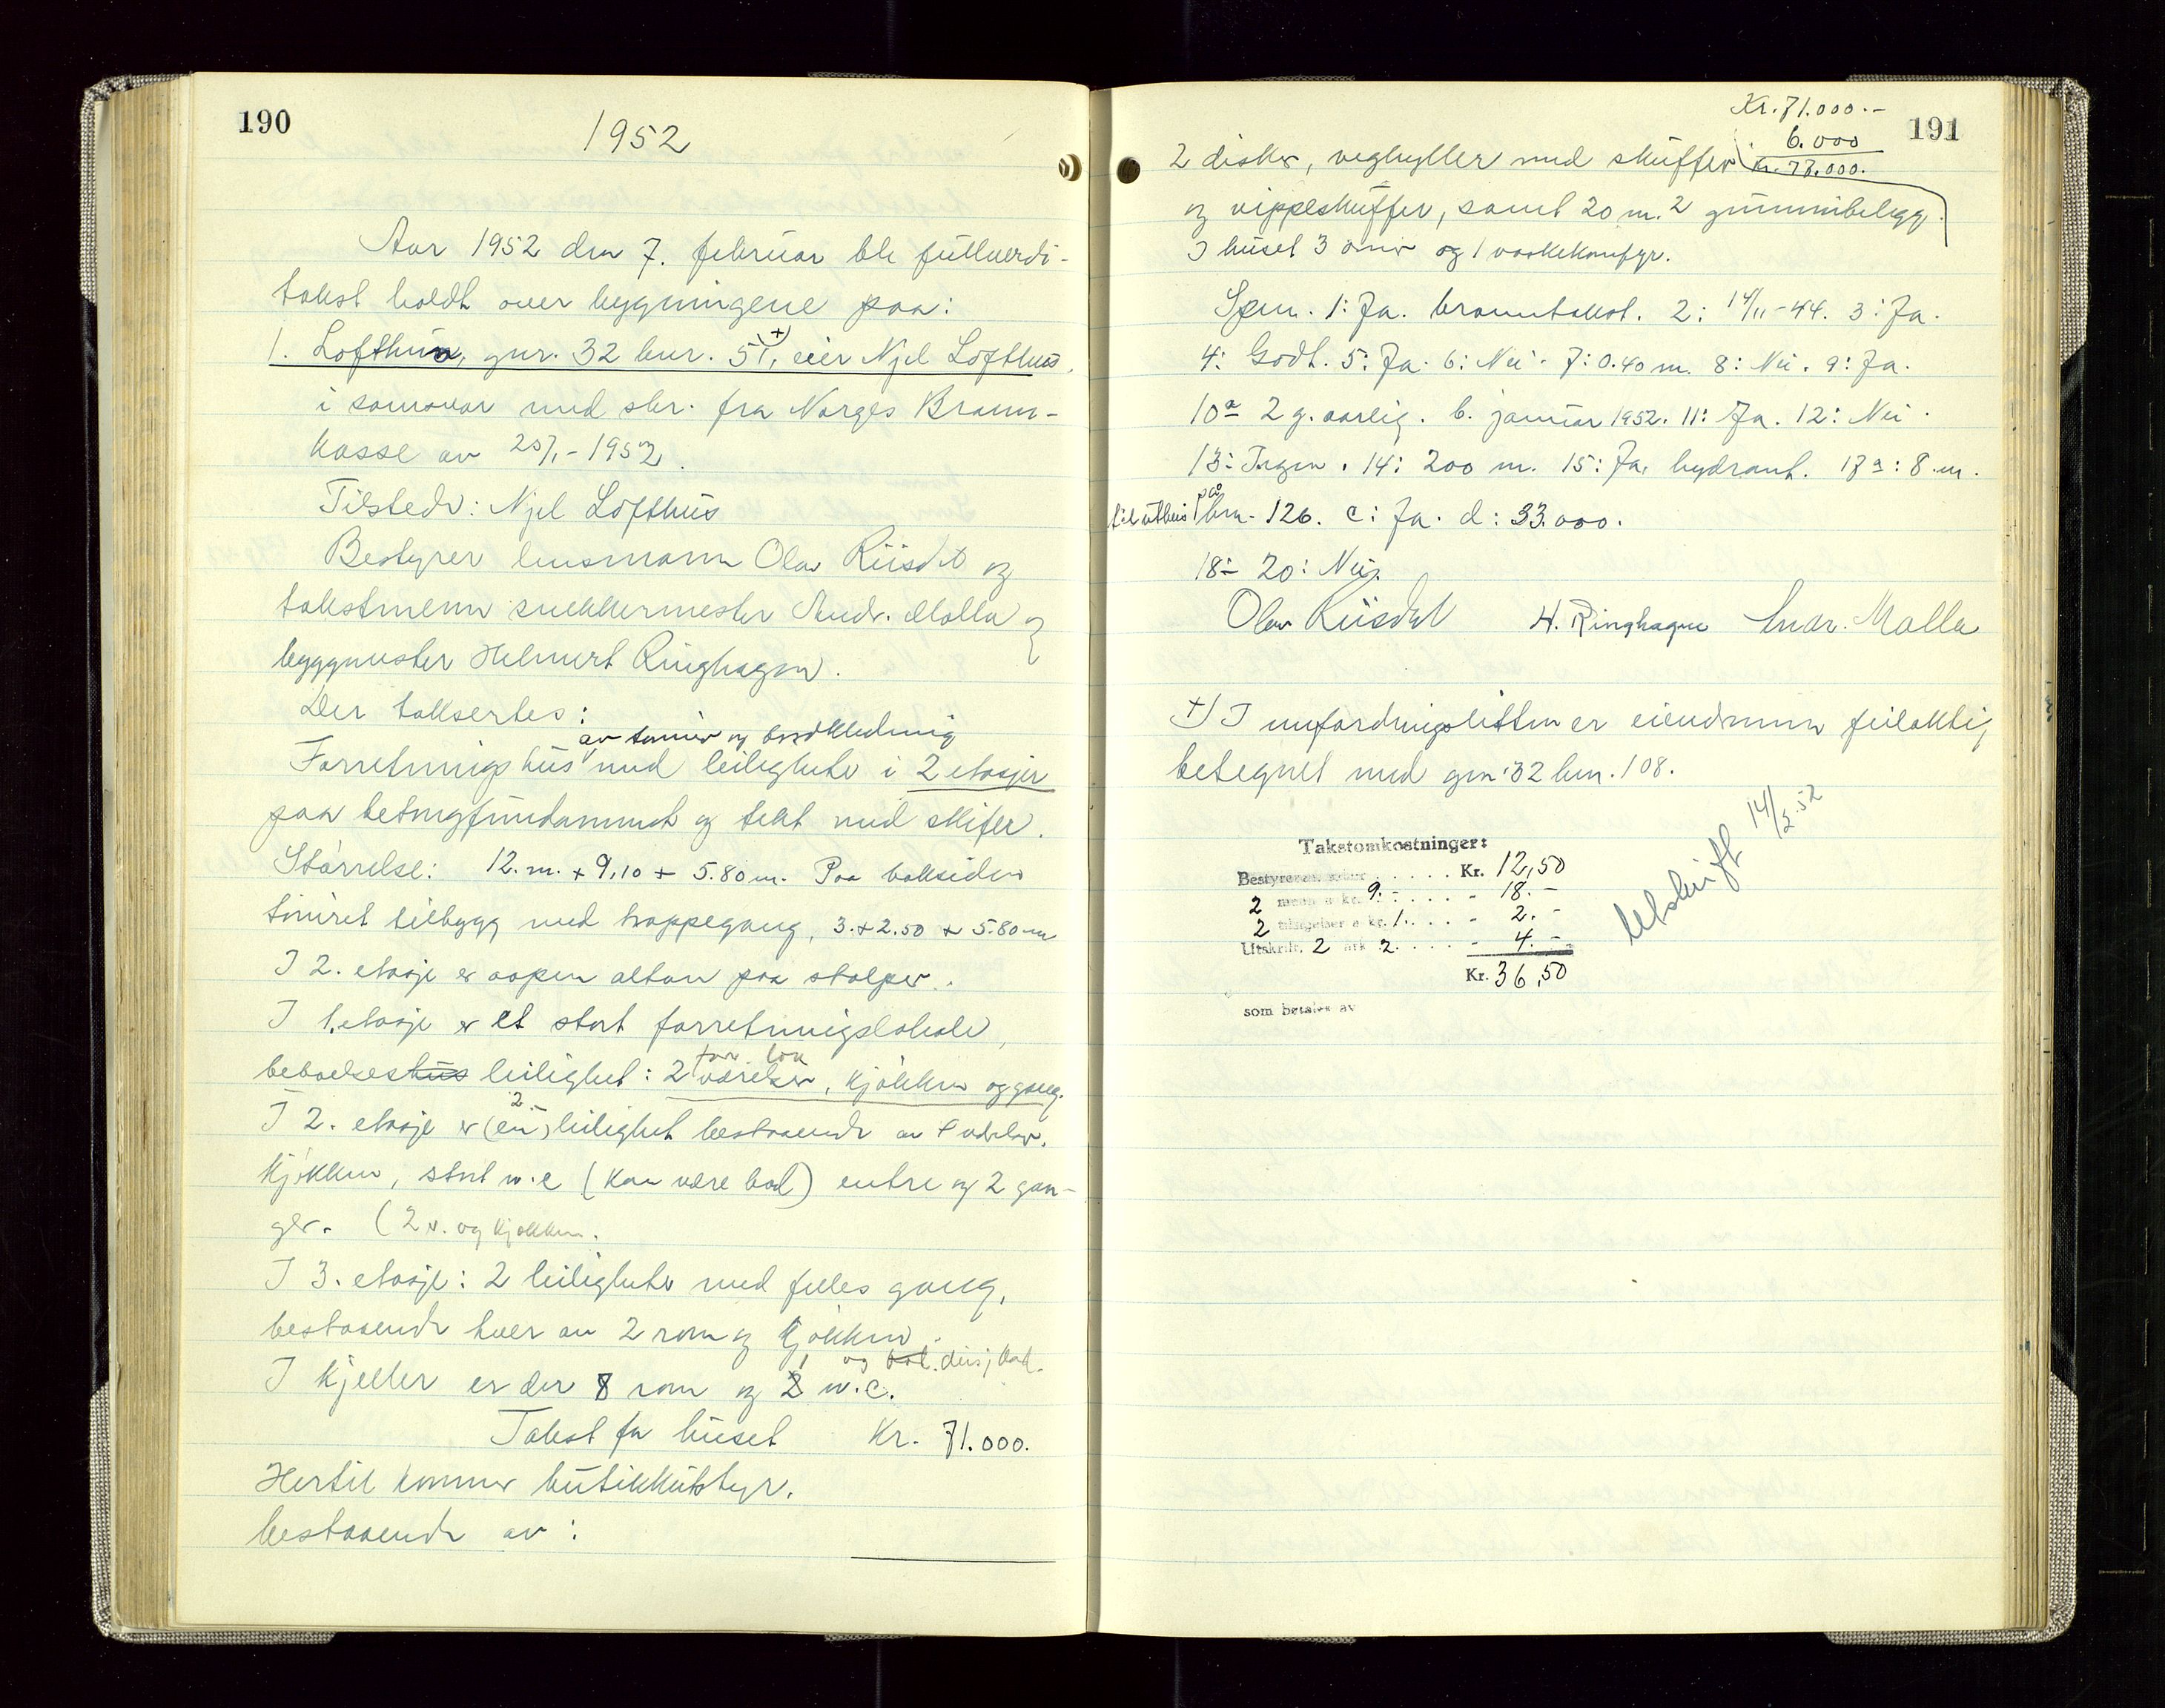 190
1952
Aar 1952 den 7. februar ble fullverdi-
takst holdt over bygningene paa:
1. Lofthus, gnr. 32 bnr. 51, +) eier Njel Lofthus.
i samsvar med skr. fra Norges Brann-
kasse av 25/1-1952.
Tilstede: Njel Lofthus
Bestyrer lensmann Olav Riisdal og
takstmenn snekkermester Andr. Molla og
byggmester Helmert Ringhagen.
Der taksertes:
av tømmer og bordkledning
Forretningshus med leiligheter i 2 etasjer
paa betongfundament og tekt med skifer.
Størrelse: 12. m. + 9,10 + 5.80 m. Paa baksiden
tømret tilbygg med trappegang, 3. + 2.50 + 5.80 m
I 2. etasje er aapen altan paa stolper.
I 1. etasje er et stort forretningslokale,
beboelseshus leilighet: 2 værelser, kjøkken og gang.
I 2. etasje er (en) 2 leilighet bestaaende av værelser.
kjøkken, stort w.c (kan være bad) entre og 2 gan-
ger. (2 v. og kjøkken.
I 3. etasje: 2 leiligheter med felles gang,
bestaaende hver av 2 rom og kjøkken.
og
I kjeller er der 8 rom og 2 w.c.
Takst for huset Kr. 71.000.
Hertil kommer butikkutstyr.
bestaaende av:
191
Kr. 71.000.-
6.000
Kr. 77.000.
2 disker, veghyller med skuffer
og vippeskuffer, samt 20 m.2 gummibelegg.
I huset 3 ovner og 1 vaskekomfyr.
Spm. 1: Ja. branntakst. 2: 14/11-44. 3: Ja.
4: Godt. 5: Ja. 6: Nei. 7: 0.40 m. 8: Nei. 9: Ja.
10a 2 g. aarlig. b. januar 1952. 11: Ja. 12: Nei.
13: Ingen. 14: 200 m. 15: Ja, hydrant. 17a: 8 m.
til uthus paa bnr. 126. c: Ja. d: 33.000.
18- 20: Nei.
Olav Riisdal H. Ringhagen Andr. Molla
+) I anfordningslisten er eiendommen feilaktig
betegnet med gnr. 32 bnr. 108.
Utskrift 14/2-52
Takstomkostninger:
Bestyreren Kr. 12,50
2 menn a kr. 9.- - 18.-
2 a kr. 1. - 2.-
Utskrift, 2 ark 2. - 4.-
Kr. 36,50
som betales av